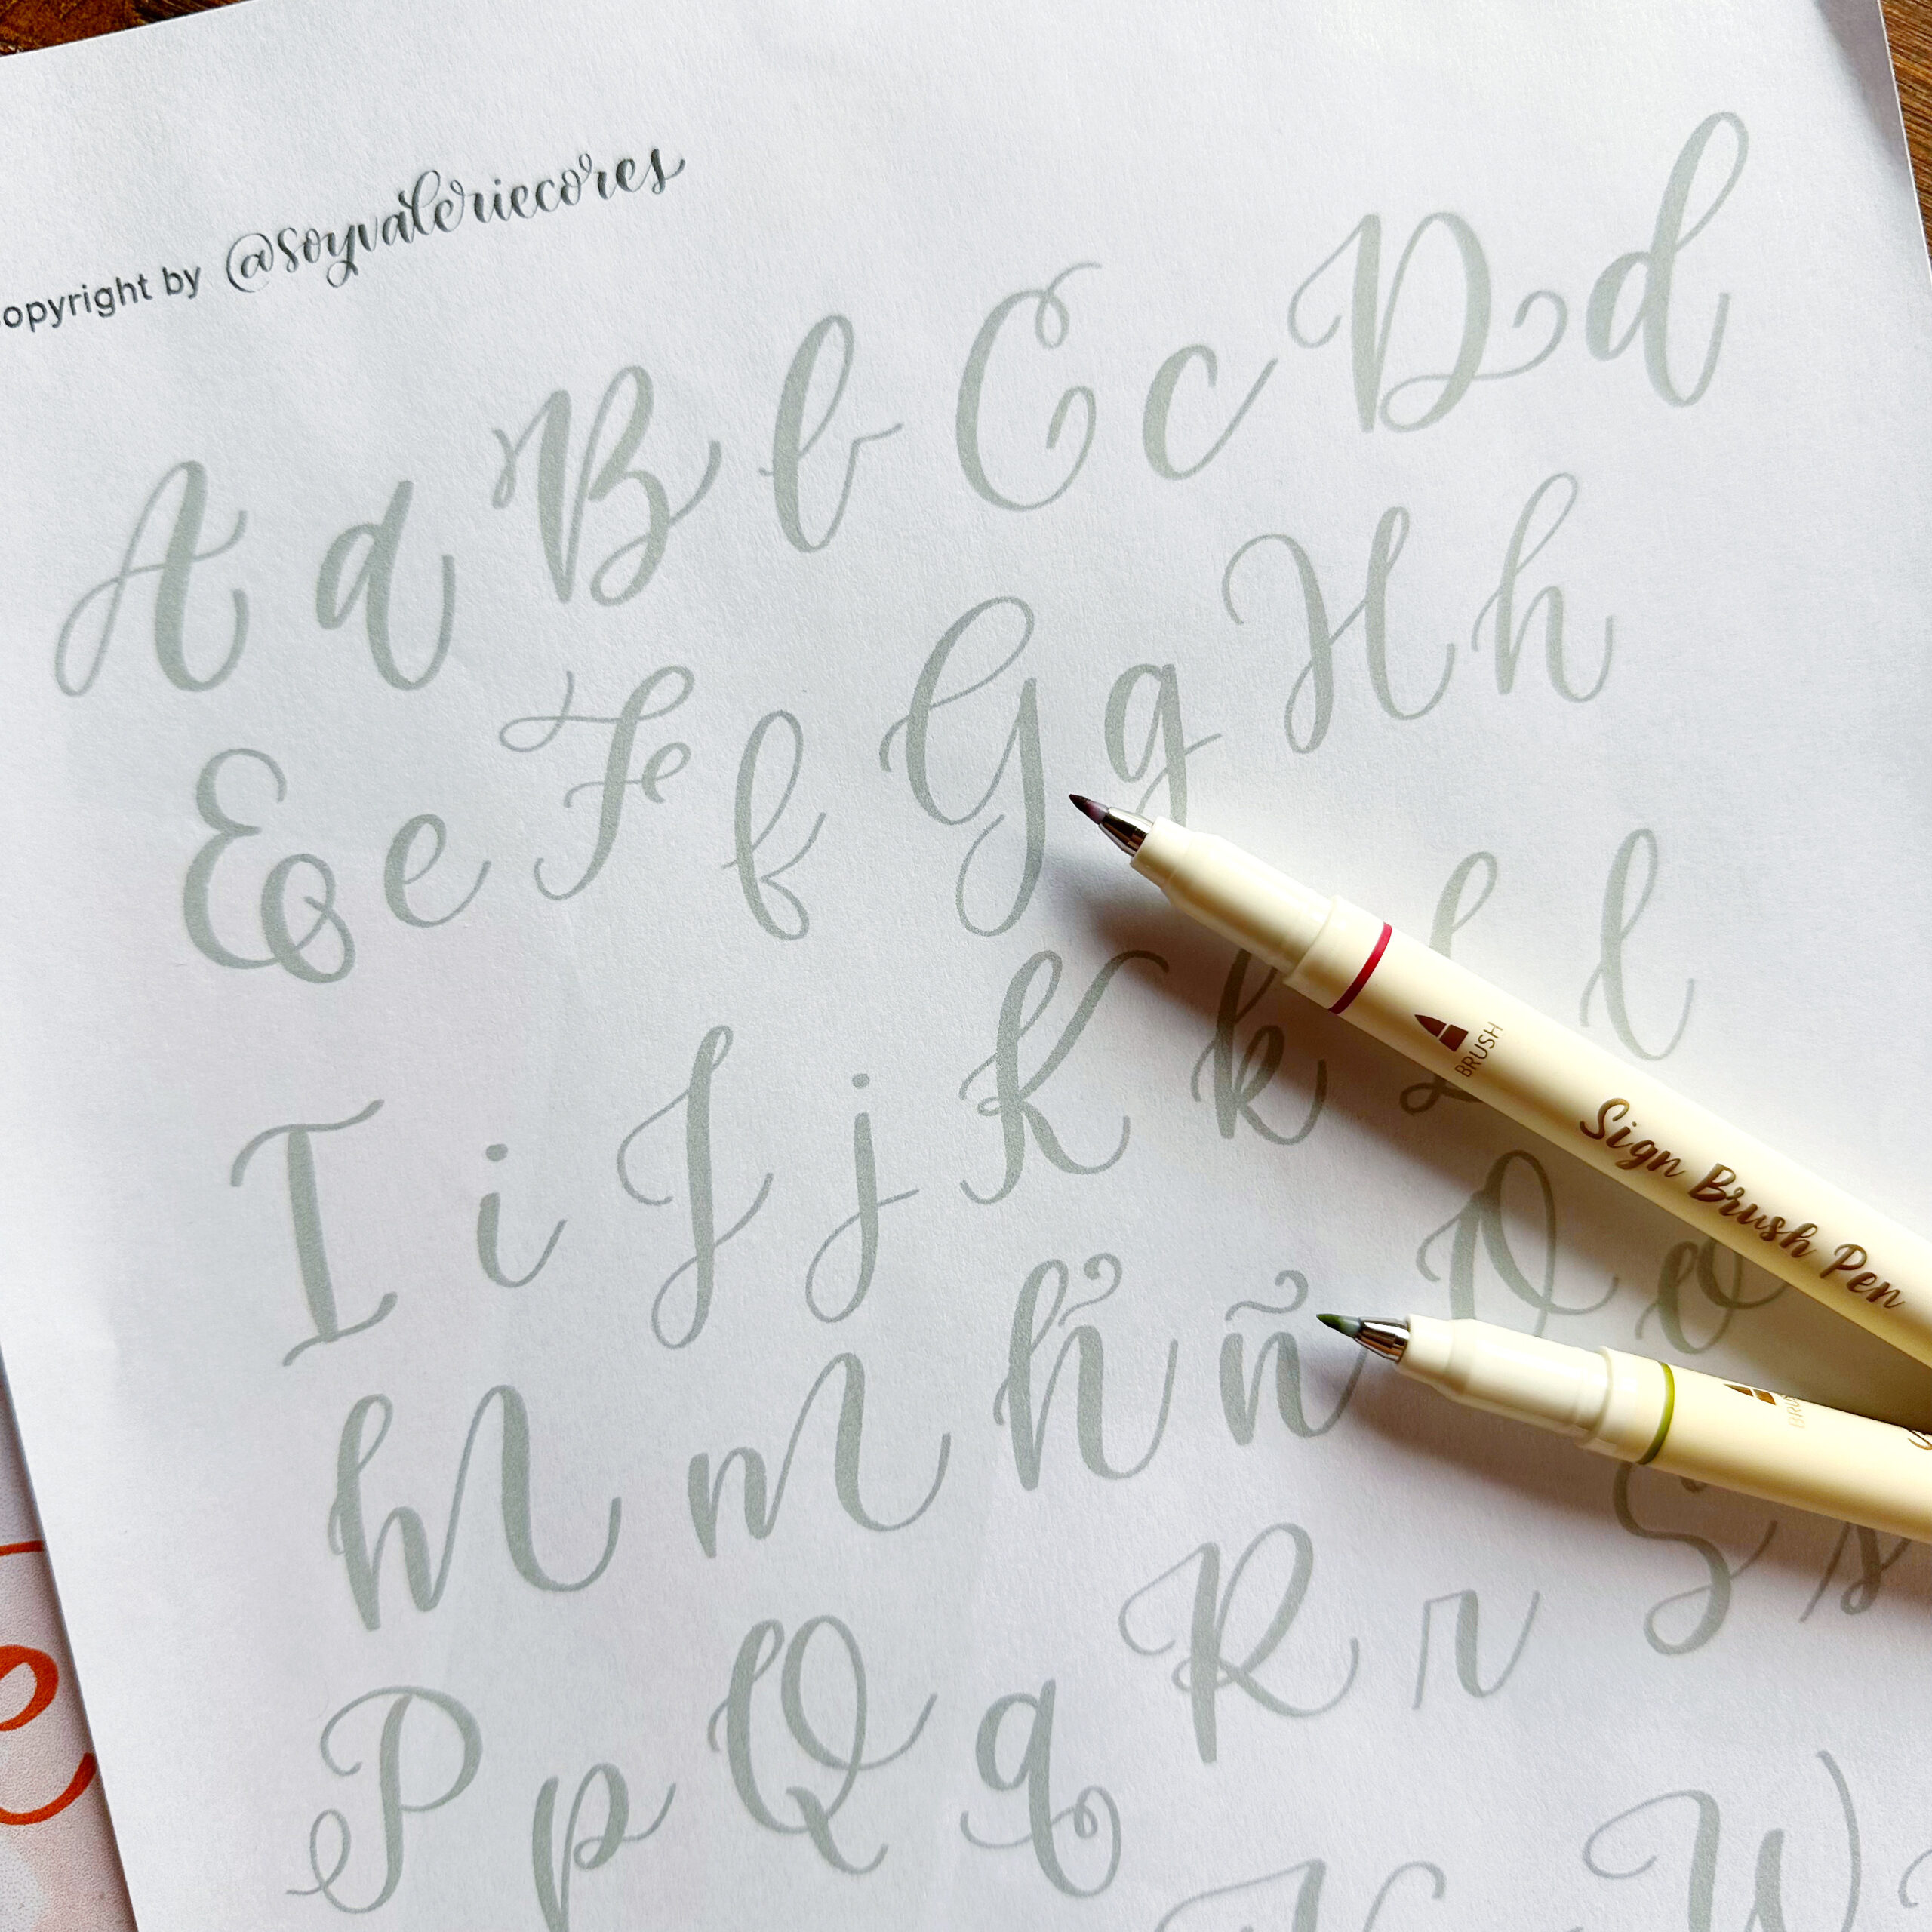 opyright by @soyvaleriecores
A a B b C c D d
E e F f G g H h
I i J j K k L l
M m Ñ ñ O o
P p Q q R r S s
W
BRUSH
Sign Brush Pen